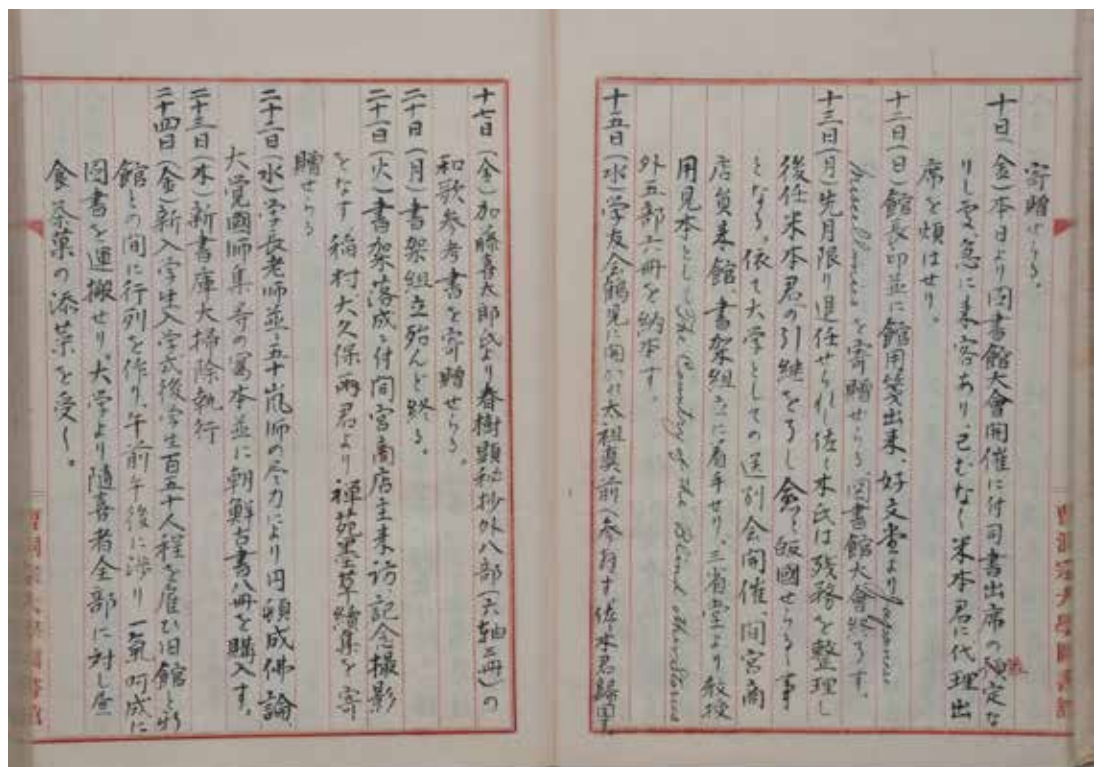 寄贈せらる。
十日(金)本日より図書館大會開催に付司書出席の豫定な
りし処急に来客あり、已むなく米本君に代理出
席を煩はせり。
十二日(日)館長印並に館用箋出来、好文堂より Japanese
を寄贈せらる、図書館大會終了す。
十三日(月)先月限り退任せられし佐々木氏は残務を整理し
後任米本君の引継をろし愈々皈國せらるゝ事
となる。依て大学としての送別会開催、間宮商
店員来館 書架組立に着手せり、三省堂より教授
用見本としし The Country of the Blind other Stories
外五部六冊を納本す。
十五日(水)学友会鶴見に開かれ太祖真前へ参拝す、佐々木君歸国す、
十七日(金)加藤喜太郎氏より春樹顕秘抄外八部(六軸三冊)の
和歌参考書を寄贈せらる。
二十日(月)書架組立殆んど終る。
二十一日(火)書架落成に付間宮商店主来訪記念撮影
をなす 稲村大久保両君より禅苑墨草続集を寄
贈せらる
二十二日(水)学長老師並に五十嵐師の尽力により円頓成佛論
大覚國師集等の写本並に朝鮮古書八冊を購入す。
二十三日(木)新書庫大掃除執行
二十四日(金)新入学生入学式後学生百五十人程を雇ひ旧館と新
館との間に行列を作り、午前午後に渉り一氣呵成に
図書を運搬せり、大学より随喜者全部に対し昼
食茶菓の添菜を受く。
曹洞宗大學圖書館
曹洞宗大學圖書館